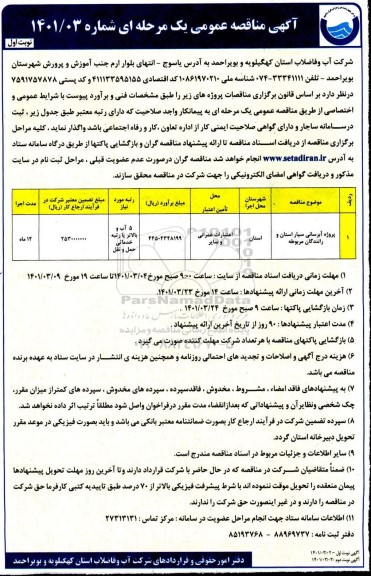 آگهی مناقصه عمومی یک مرحله ای شماره ۱۴۰۱/۰۳
نوبت اول
شرکت آب وفاضلاب استان کهگیلویه و بویراحمد به آدرس یاسوج - انتهای بلوار ارم جنب آموزش و پرورش شهرستان
بویراحمد - تلفن ۳۳۳۴۱۱۱-۰۷۴ شناسه ملی ۱۰۸۶۱۹۷۰۲۱۰ کد اقتصادی ۴۱۱۱۳۳۵۹۵۱۵۵ و کد پستی ۷۵۹۱۷۵۷۸۷۸
درنظر دارد بر اساس قانون برگزاری مناقصات پروژه های زیر را طبق مشخصات فنی و برآورد پیوست با شرایط عمومی و
اختصاصی از طریق مناقصه عمومی یک مرحله ای به پیمانکار واجد صلاحیت که دارای رتبه معتبر طبق جدول زیر ، ثبت
درسامانه ساجار و دارای گواهی صلاحیت ایمنی کار از اداره تعاون ، کار و رفاه اجتماعی باشد واگذار نماید ، کلیه مراحل
برگزاری مناقصه از دریافت اسناد مناقصه تا ارائه پیشنهاد مناقصه گران و بازگشایی پاکتها از طریق درگاه سامانه ستاد
به آدرس www.setadiran.ir انجام خواهد شد مناقصه گران درصورت عدم عضویت قبلی ، مراحل ثبت نام در سایت
مذکور و دریافت گواهی امضای الکترونیکی را جهت شرکت در مناقصه محقق سازند.
ردیف موضوع مناقصه شهرستان محل اجرا محل تأمین اعتبار مبلغ برآورد (ریال) رتبه مورد نیاز مبلغ تضمین معتبر شرکت در فرآیند ارجاع کار (ریال) مدت اجرا
۱ پروژه آبرسانی سیار استان و رانندگان مربوطه استان اعتبارات عمرانی و سایر ۵ آب و بالاتر یا رتبه خدماتی حمل و نقل ۱۲ ماه
۱) مهلت زمانی دریافت اسناد مناقصه از سایت : ساعت ۹:۰۰ صبح مورخ ۱۴۰۱/۰۳/۰۴ تا ساعت ۱۹ مورخ ۱۴۰۱/۰۳/۰۹
۲) آخرین مهلت زمانی ارائه پیشنهادها : ساعت ۱۴ مورخ ۱۴۰۱/۰۳/۲۳.
۳) زمان بازگشایی پاکتها : ساعت ۹ صبح مورخ ۱۴۰۱/۰۳/۲۴ .
۴) مدت اعتبار پیشنهادها : ۹۰ روز از تاریخ آخرین ارائه پیشنهاد .
۵) بازگشایی پاکتهای مناقصه با هر تعداد شرکت مهلت کننده صورت می گیرد.
۶) هزینه درج آگهی و اصلاحات و تجدید های احتمالی روزنامه و همچنین هزینه ی انتشار در سایت ستاد به عهده برنده
مناقصه می باشد.
۷) به پیشنهادهای فاقد امضاء ، مشروط ، مخدوش ، فاقدسپرده ، سپرده های مخدوش ، سپرده های کمتراز میزان مقرر،
چک شخصی ونظایر آن و پیشنهاداتی که بعدازانقضاء مدت مقرر درفراخوان واصل شود مطلقاً ترتیب اثر داده نخواهد شد.
۸) سپرده تضمین شرکت در فرآیند ارجاع کار بصورت ضمانتنامه معتبر بانکی می باشد و باید بصورت فیزیکی در موعد مقرر
تحویل دبیرخانه استان گردد.
۹) سایر اطلاعات و جزئیات مربوط در اسناد مناقصه مندرج است.
۱۰) ضمناً متقاضیان شرکت در مناقصه که در حال حاضر با شرکت قرارداد دارند وتا آخرین روز مهلت تحویل پیشنهادها
پیمان منعقده را تحویل موقت ننموده اند با شرط پیشرفت فیزیکی بالاتر از ۷۰ درصد طبق تاییدیه کتبی کارفرما حق شرکت
در مناقصه را دارند و در غیر اینصورت حق شرکت را ندارند.
۱۱) اطلاعات سامانه ستاد جهت انجام مراحل عضویت در سامانه : مرکز تماس : ۲۷۳۱۳۱۳۱
دفتر ثبت نامه : ۸۸۹۶۹۷۳۷ - ۸۵۱۹۳۷۶۸
دفتر امور حقوقی و قراردادهای شرکت آب وفاضلاب استان کهگیلویه و بویراحمد